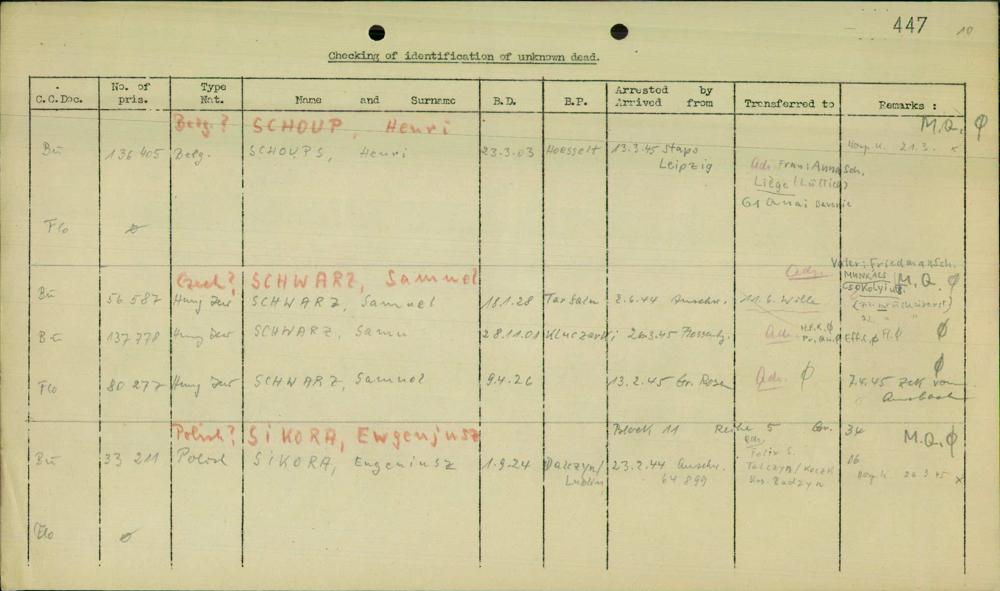 447 10
Checking of identification of unknown dead.
C.C.Doc. No. of pris. Type Nat. Name and Surname B.D. B.P. Arrested by Arrived from Transferred to Remarks :
Belg.? SCHOUP, Henri M.Q. φ
Bu 136405 Belg. SCHOUPS, Henri 23.3.03 Hoesselt 13.3.45 Stapo 21.3. x
Leipzig Adr. Frau: Anna Sch.
Liège (Lüttich)
61
Flo ø
Czech? SCHWARZ, Samuel Adr. Vater: Friedman Sch.
MUNKÁCS M.Q. φ
Bu 56587 Hung Jew SCHWARZ, Samuel 18.1.28 2.6.44 Auschw. 11.6. Wille
Bu 137778 Hung Jew SCHWARZ, Samu 28.11.01 26.3.45 Flossenbg. Adr. φ φ
Flo 80277 Hung Jew SCHWARZ, Samuel 9.4.26 13.2.45 Gr. Rosen Adr. φ 7.4.45 zck von φ
Ansbach
Polish? SIKORA, Ewgenjusz Block 11 Reihe 5 Gr. 34 M.Q. φ
Bu 33211 Polish SIKORA, Eugeniusz 1.9.24 Dalczyn/ 23.2.44 Auschw. Adr. Felix S.
Lublin 64899 Talczyn/Kock
Radzyn x
Flo ø